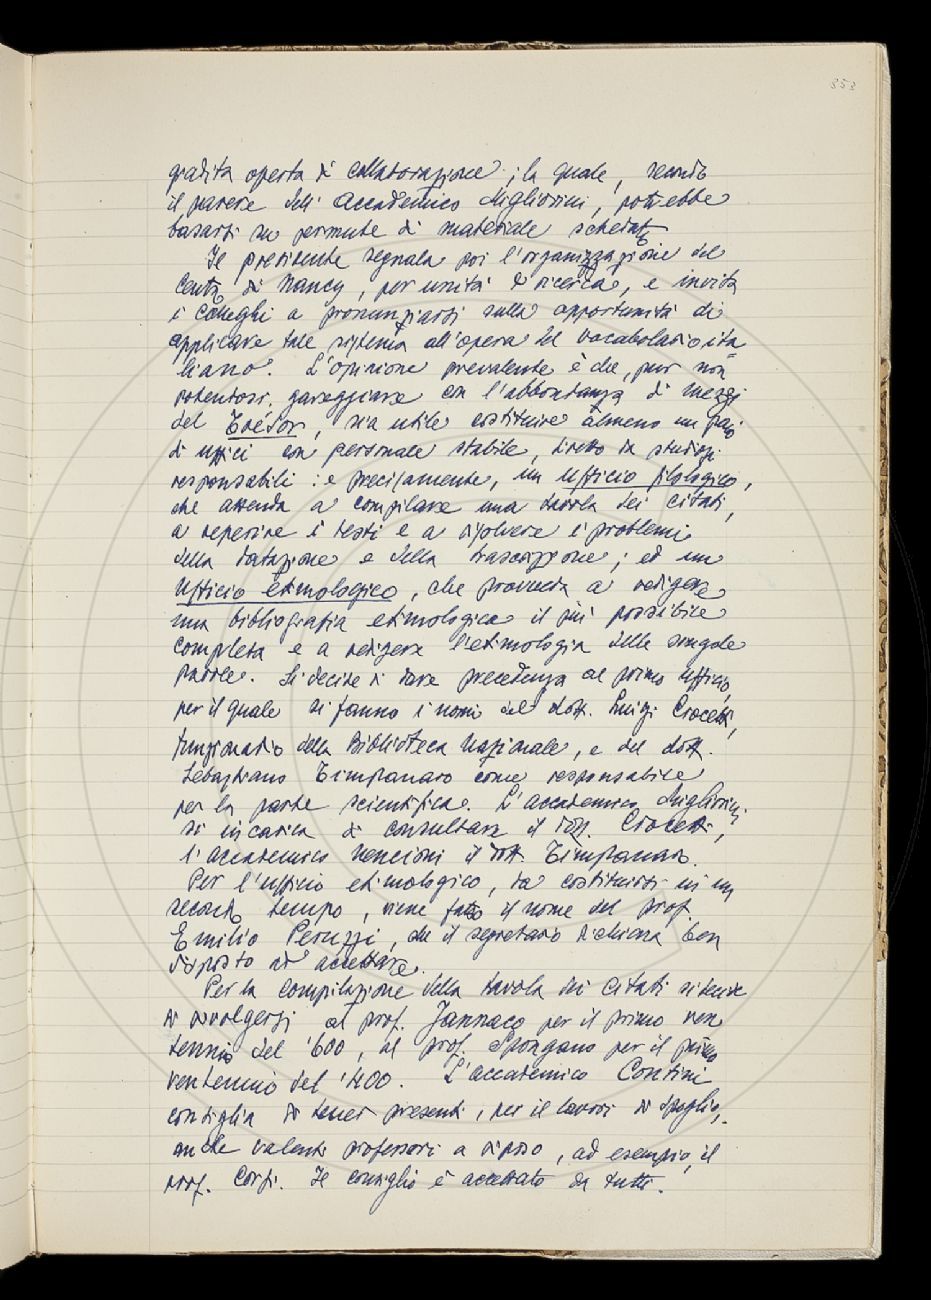 353
gradita oferta di collaborazione; la quale, secondo
il parere dell'Accademico Migliorini, potrebbe
basarsi su permute di materiale schedato.
Il presidente segnala poi l'organizzazione del
Centro di Nancy, per unità di ricerca, e invita
i colleghi a pronunziarsi sulla opportunità di
applicare tale sistema all'opera del vocabolario ita
liano. L'opinione prevalente è che, pur non
potendosi gareggiare con l'abbondanza di mezzi
del Trésor, sia utile costituire almeno un paio
di uffici con personale stabile, diretto da studiosi
responsabili: e precisamente, un Ufficio filologico,
che attenda a compilare una tavola dei citati,
a reperire i testi e a risolvere i problemi
della datazione e della trascrizione; ed un
Ufficio etimologico, che provveda a redigere
una bibliografia etimologica il più possibile
completa e a redigere l'etimologia delle singole
parole. Si decide di dare precedenza al primo ufficio,
per il quale si fanno i nomi del dott. Luigi Crocetti,
funzionario della Biblioteca Nazionale, e del dott.
Sebastiano Timpanaro come responsabile
per la parte scientifica. L'accademico Migliorini
si incarica di consultare il dott. Crocetti,
l'accademico Nencioni il dott. Timpanaro.
Per l'ufficio etimologico, da costituirsi in un
secondo tempo, viene fatto il nome del prof.
Emilio Peruzzi, che il segretario dichiara ben
disposto ad accettare.
Per la compilazione della tavola dei citati si decide
di rivolgersi al prof. Jannaco per il primo ven
tennio del '600, al prof. Spongano per il primo
ventennio del '400. L'accademico Contini
consiglia di tener presenti, per il lavoro di spoglio,
anche valenti professori a riposo, ad esempio, il
prof. Corsi. Il consiglio è accettato da tutti.